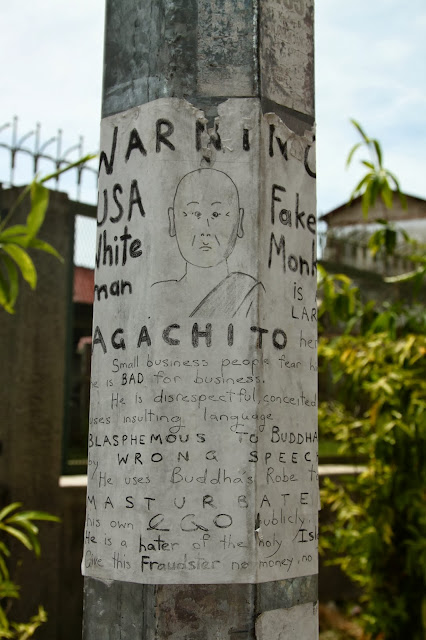 WARNING
USA Fake
White Monk
man is
LAR
AGACHITO her
Small business people fear h
e is BAD for business.
He is disrespectful, conceited
uses insulting language
BLASPHEMOUS TO BUDDHA
by WRONG SPEECH
He uses Buddha's Robe to
MASTURBATE
his own EGO publicly.
He is a hater of the holy Isl
Give this Fraudster no money, no